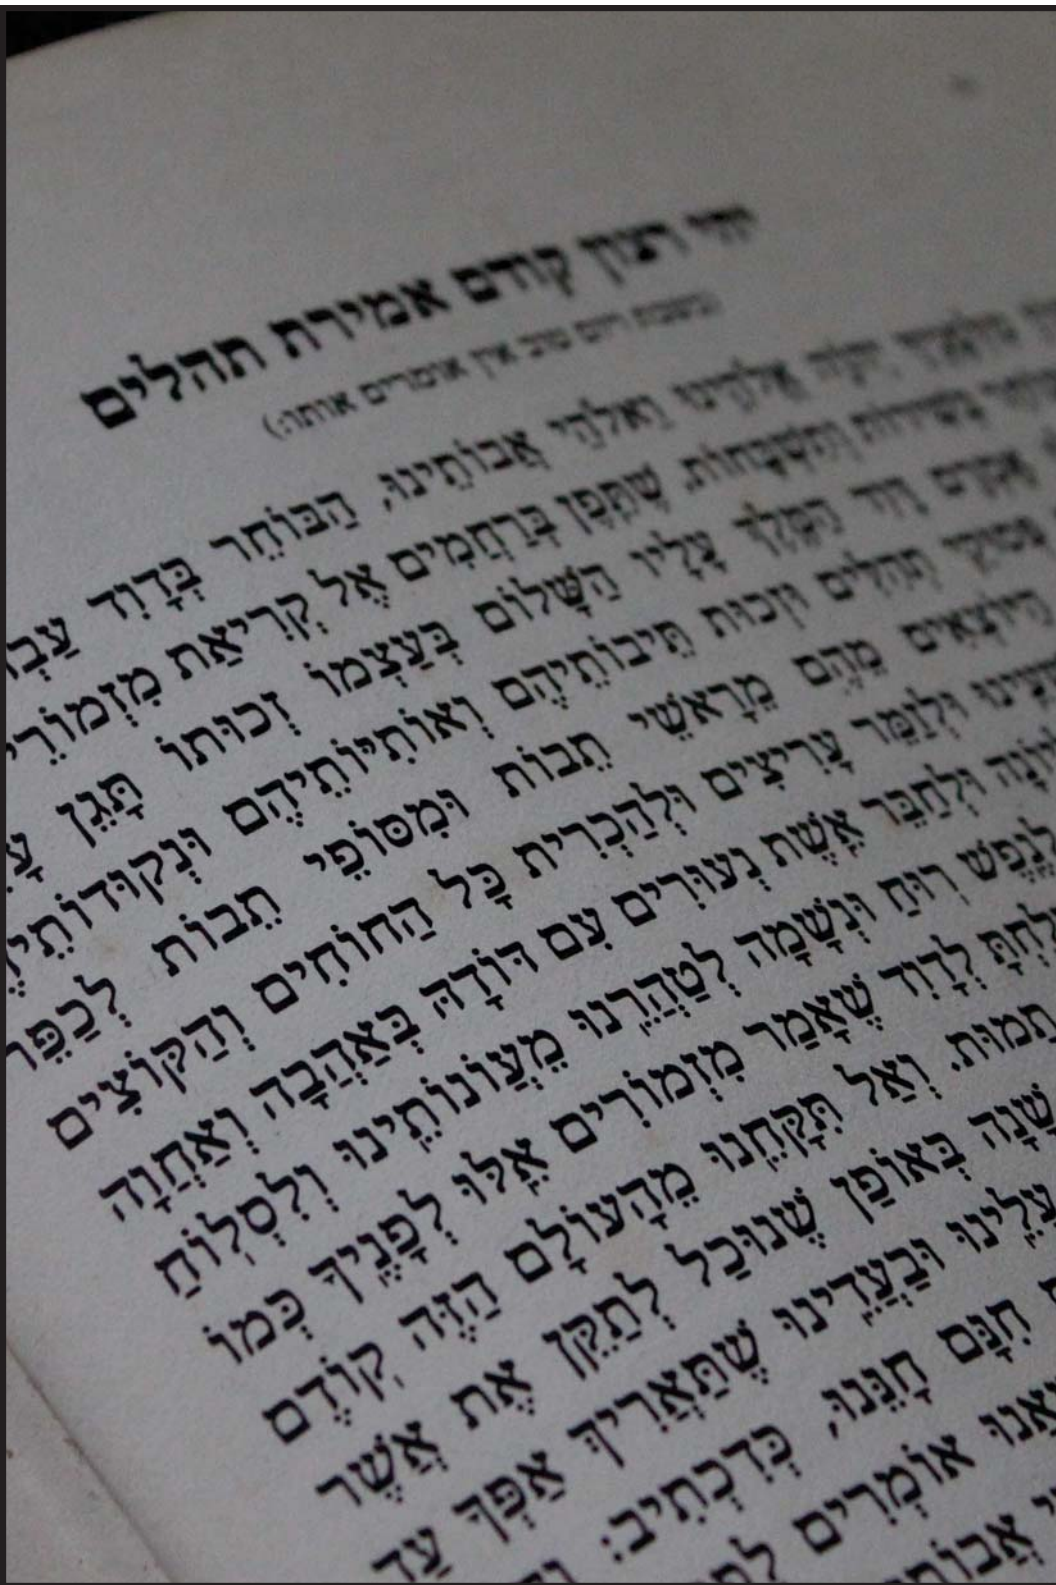 יהי רצון קודם אמירת תהלים
(בשבת ויום טוב אין אומרים אותו:)
מִלְּפָנֶיךָ יְהֹוָה אֱלֹהֵינוּ וֵאלֹהֵי אֲבוֹתֵינוּ, הַבּוֹחֵר בְּדָוִד
בְּשִׁירוֹת וְתִשְׁבָּחוֹת, שֶׁתֵּפֶן בְּרַחֲמִים אֶל קְרִיאַת
דָּוִד הַמֶּלֶךְ עָלָיו הַשָּׁלוֹם בְּעַצְמוֹ זְכוּתוֹ תָּגֵן
פְּסוּקֵי תְהִלִּים וּזְכוּת תֵּיבוֹתֵיהֶם וְאוֹתִיּוֹתֵיהֶם
הַיּוֹצְאִים מֵהֶם מֵרָאשֵׁי תֵבוֹת וּמִסּוֹפֵי תֵבוֹת לְכַפֵּר
וּלְזַמֵּר עָרִיצִים וּלְהַכְרִית כָּל הַחוֹחִים וְהַקּוֹצִים
וּלְחַבֵּר אֵשֶׁת נְעוּרִים עִם דּוֹדָהּ בְּאַהֲבָה וְאַחֲוָה
לְנֶפֶשׁ רוּחַ וּנְשָׁמָה לְטַהֲרֵנוּ מֵעֲוֹנוֹתֵינוּ וְלִסְלוֹחַ
לְדָוִד שֶׁאָמַר מִזְמוֹרִים אֵלּוּ לְפָנֶיךָ כְּמוֹ
תָמוּת. וְאַל תִּקָּחֵנוּ מֵהָעוֹלָם הַזֶּה קוֹדֶם
שָׁנָה בְּאוֹפַן שֶׁנּוּכַל לְתַקֵּן אֶת אֲשֶׁר
עָלֵינוּ וּבַעֲדֵינוּ שֶׁתַּאֲרִיךְ אַפְּךָ עַד
חִנָּם חָנֵּנוּ, כְּדִכְתִיב:
אוֹמְרִים